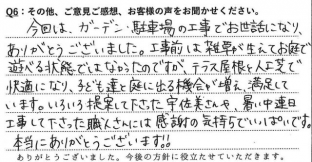 Q6：その他、ご意見ご感想、お客様の声をお聞かせください。
今回は、ガーデン・駐車場の工事でお世話になり、
ありがとうございました。工事前は雑草が生えてお庭で
遊べる状態ではなかったのですが、テラス屋根と人工芝で
快適になり、子ども達と庭に出る機会が増え、満足して
います。いろいろ提案して下さった宇佐美さんや、暑い中連日
工事して下さった職人さんには感謝の気持ちでいっぱいです。
本当にありがとうございます!!
ありがとうございました。今後の方針に役立たせていただきます。